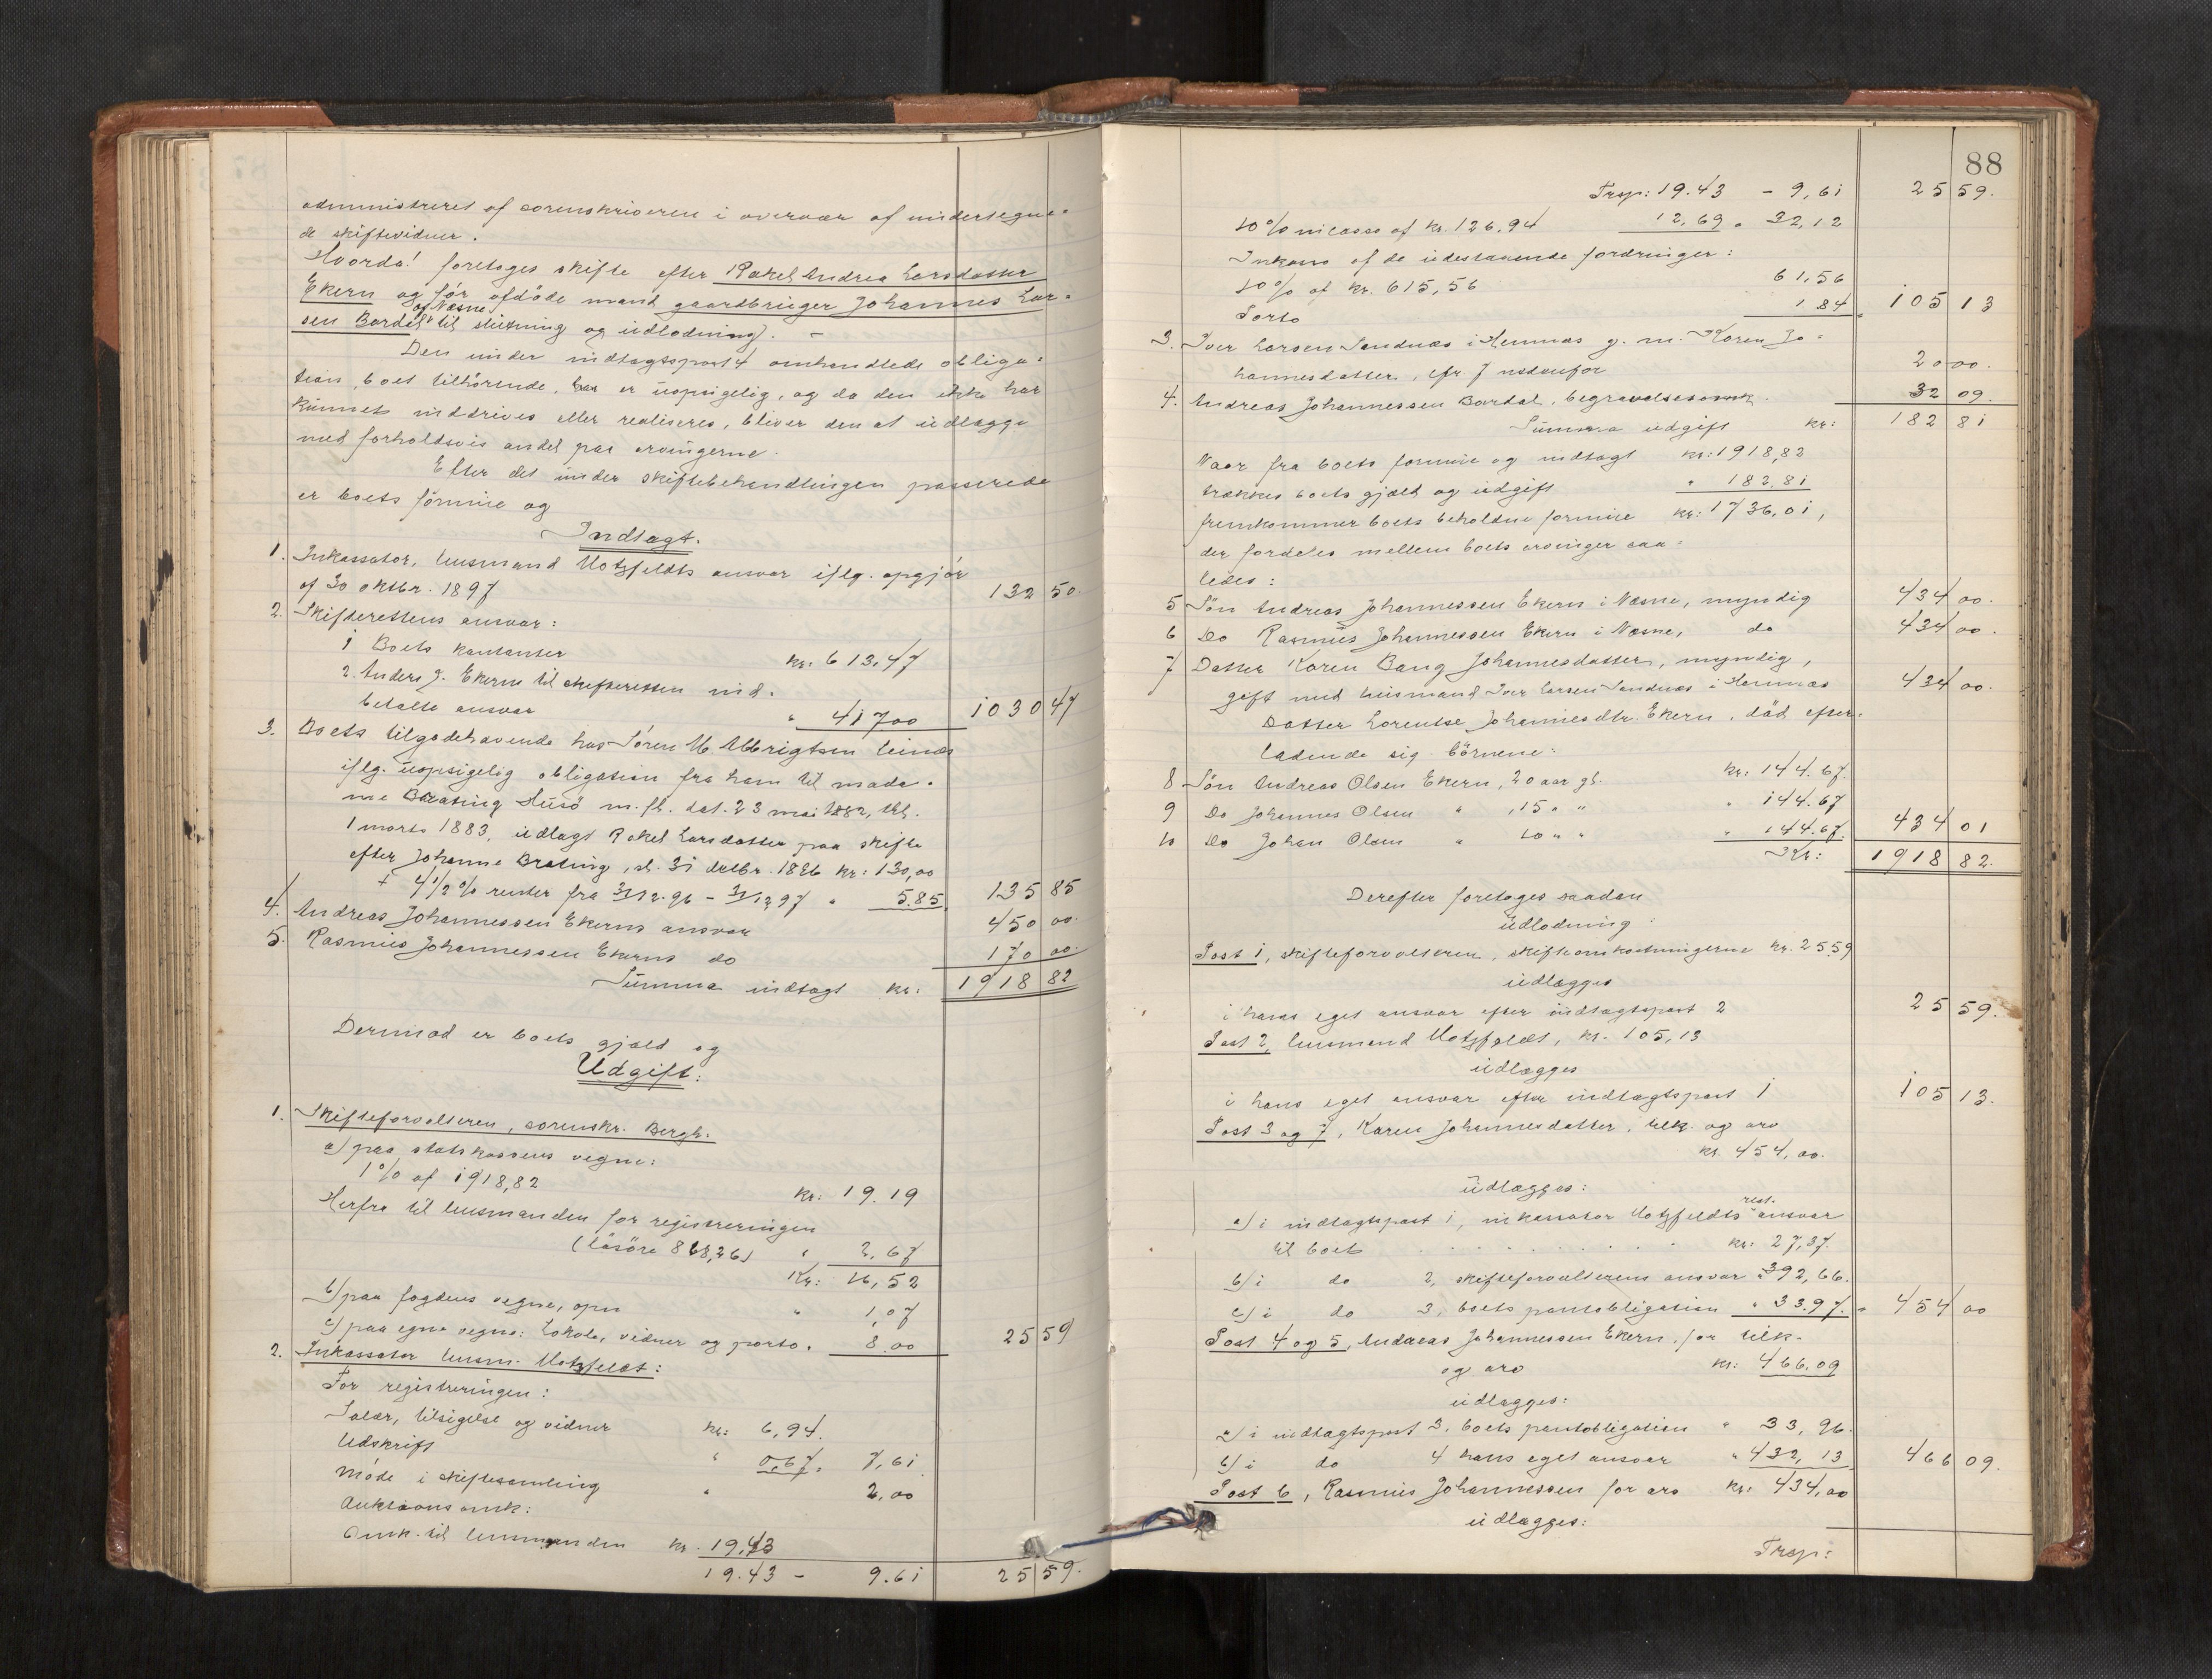 administreret af sorenskriveren i overvær af undertegne-
de skiftevidner.
Hvorda! foretoges skifte efter Rakel Andrea Larsdatter
Ekern og før afdøde mand gaardbruger Johannes Lar-
sen Bardal af Næsne til slutning og udlodning). –
Den under indtægtspost 4 omhandlede obliga-
tion, boet tilhørende, er uopsigelig, og da den ikke har
kunnet inddrives eller realiseres, bliver den at udlægge
med forholdsvis andel paa arvingerne.
Efter det under skiftebehandlingen passerede
er boets formue og
Indtægt.
1. Inkassator, lensmand Motzfeldts ansvar iflg. opgjør
af 30 oktbr. 1897 132 50.
2. Skifterettens ansvar:
1 Boets kontanter kr: 613,47
2. Anders J. Ekern til skifteretten ind-
betalte ansvar " 417 00 1030 47
3. Boets tilgodehavende hos Søren M Albrigtsen Leines
iflg. uopsigelig obligation fra ham til mada-
me Brating Husø m. fl. dat. 23 mai 1882, thl.
1 marts 1883, udlagt Rakel Larsdatter paa skifte
efter Johanne Brating, sl. 31 decbr. 1886 kr: 130,00
+ 4 1/2 % renter fra 31/12.96 – 31/12 97 " 5.85 135 85
4. Andreas Johannessen Ekerns ansvar 450 00.
5. Rasmus Johannessen Ekerns do 170 00.
Summa indtægt kr: 1918 82
Dermod er boets gjæld og
Udgift:
1. Skifteforvalteren, sorenskr. Bergh.
a) paa statskassens vegne:
1 % af 1918,82 kr: 19.19
Herfra til lensmanden for registreringen
(løsøre 868,26) " 2,67
Kr: 16,52
b) paa fogdens vegne, opn " 1,07
c) paa egne vegne: Lokale, vidner og porto. 8.00 25 59
2. Inkassator lensm. Motzfeldt:
For registreringen:
Salær, tilsigelse og vidner kr: 6,94.
Udskrift " 0,67. 7,61
Møde i skiftesamling " 2,00
Auktionsomk:
Omk. til lensmanden kr. 19,43
19.43 – 9.61 25 59.
88
Trsp: 19.43 – 9,61 25 59.
10 % incasso af kr. 126,94 12,69 " 32,12
Inkasso af de udestaaende fordringer:
10 % af kr. 615,56 61,56
Porto 1.84 " 105 13
3. Iver Larsen Sandnæs i Hemnæs g. m. Karen Jo-
hannesdatter, cfr. 7 nedenfor 20 00.
4. Andreas Johannessen Bardal, begravelsesomk. 32 09.
Summa udgift kr: 182 81
Naar fra boets formue og indtægt kr: 1918,82
trækkes boets gjæld og udgift " 182.81
fremkommer boets beholdne formue kr: 1736,01,
der fordeles mellem boets arvinger saa-
ledes:
5 Søn Andreas Johannessen Ekern i Næsne, myndig 434 00.
6 Do Rasmus Johannessen Ekern i Næsne, do 434 00.
7 Datter Karen Bang Johannesdatter, myndig,
gift med husmand Iver Larsen Sandnæs i Hemnæs 434 00.
Datter Lorentse Johannesdtr. Ekern, død efter-
ladende sig børnene:
8 Søn Andreas Olsen Ekern, 20 aar gl. kr: 144.67.
9 Do Johannes Olsen " , 15 " " " 144.67
10 Do Johan Olsen " 10 " " " 144.67. 434 01
Kr: 1918 82.
Derefter foretoges saadan
Udlodning:
Post 1, skifteforvalteren, skifteomkostningerne kr. 25.59
udlægges
i hans eget ansvar efter indtægtspost 2 25 59.
Post 2, lensmand Motzfeldt, kr. 105,13
udlægges
i hans eget ansvar efter indtægtspost 1 105 13.
Post 3 og 7, Karen Johannesdatter, tilk. og arv
kr. 454,00.
udlægges:
a) i indtægtspost 1, inkassator Motzfeldts rest. ansvar
til boet . . . . . . . . . . . kr: 27,37.
b) i do 2, skifteforvalterens ansvar " 392,66.
c) i do 3, boets pantobligation " 33.97. " 454 00
Post 4 og 5, Andreas Johannessen Ekern, for tilk.
og arv kr: 466,09
udlægges:
a) i indtægtspost 3, boets pantobligation " 33,96.
b) i do 4 hans eget ansvar " 432,13 466 09.
Post 6, Rasmus Johannessen for arv kr: 434,00
udlægges:
Trsp: